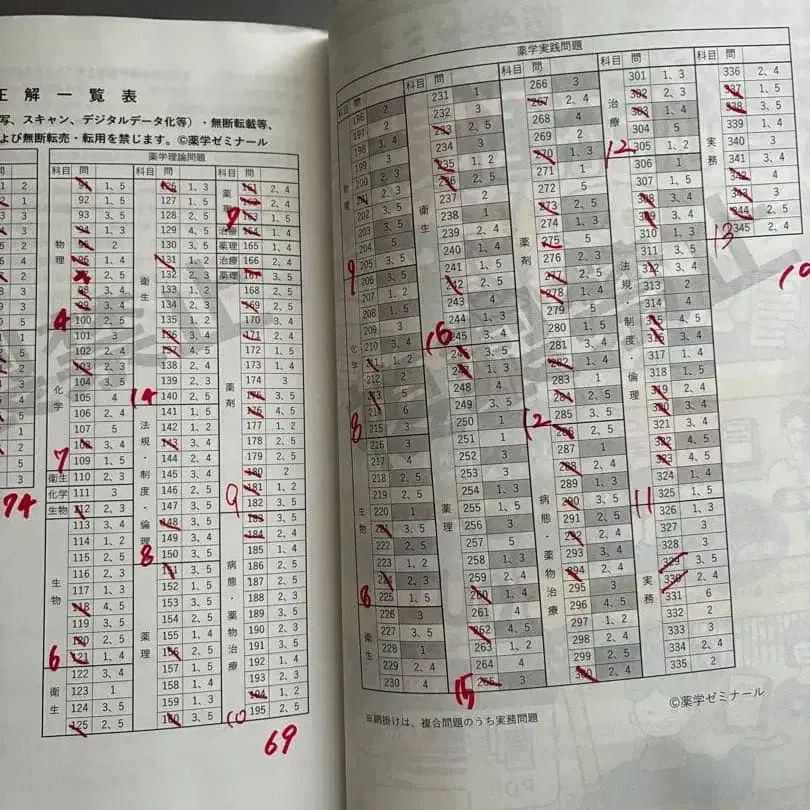 正解一覧表
写、スキャン、デジタルデータ化等）・無断転載等、
よび無断転売・転用を禁じます。©薬学ゼミナール
問
74
薬学理論問題
科目 問
物理
1、5
92 1、5
93 3、5
1、3
2
96 1、4
2、5
98 3、4
99 3、4
100 2、5
4
化学
101 3
102 2、4
103 2、3
104 3、5
105 4
106 2、4
107 2、5
108 3、4
109 1、5
7
衛生 110 2、3
化学 111 3
生物 112 2、3
生物
113 3、4
114 1、2
115 2、5
116 2、3
117 1、3
118 4、5
119 3、5
120 2、5
121 1、4
6
衛生
122 3、4
123 1
124 3、5
125 2、5
科目 問
衛生
126 1、3
127 1、5
128 2、5
129 4、5
130 3、5
131 1、2
132 2、3
133 1、2
134 2、3
135 1、2
136 3、4
4、5
138 2、4
139 2、3
140 2、5
14
法規・制度・倫理
141 1、5
142 1、2
143 3、4
144 2、4
145 3、4
146 4、5
147 2、5
148 3、5
149 3、4
150 3、5
8
薬理
3、5
152 1、5
153 3、5
154 2、5
155 1、4
156 2、5
157 1、5
158 1、4
159 1、3
160 3、5
科目 問
2、4
2、4
1、5
1、4
7
薬理 165 1、4
治療 166 2、4
薬理 3、5
治療 168 2、5
薬剤
169 2、5
170 3、4
171 2、4
172 1、5
173 1、4
174 3
3、5
176 4、5
177 1、2
178 2、5
179 2、5
180 2
181 1、2
182 3、5
9
病態・薬物治療
183 3、5
184 2、4
185 1、4
186 2、5
187 2、5
188 2、3
189 3、4
190 2、3
191 3、5
192 1、3
193 1、4
194 1、2
195 2、5
10
69
薬学実践問題
科目 問
物理
196 2
197 2
198 3、4
199 3
200 3、4
201 2、3
202 3、5
203 3、5
204 5
205 3、5
206 3、5
9
化学
207 1、2
208 4
209 5
210 3、4
211 1、2
212 2
213 5
214 6
215 3
8
生物
216 3
217 4
218 2、5
219 2、5
220 1
221 3、5
222 2、5
223 1、2
224 2、3
225 1、5
8
衛生
226 3
227 3、5
228 1
229 2、4
230 4
科目 問
衛生
231 1
232 3、4
233 2、5
234 3
235 1、2
236 2、5
237 2
238 1
239 2、4
240 1、4
241 1、5
242 2、5
243 4
244 4、5
245 3、4
16
薬理
246 3、5
1、3
248 4
249 3、5
250 1
251 1
252 3、4
253 3、4
254 1、3
255 1、5
256 3
257 5
258 1、3
259 2、4
260 1、4
261 4
262 4、5
263 1、2
264 4
265 3
15
科目 問
薬剤
266 3
267 2、4
268 4
269 2
270 1、3
271 1
272 5
273 2、5
274 1、3
275 5
276 2、4
277 2、5
278 1、4
279 5
280 1、5
281 3、5
282 1、4
283 1
284 2、5
285 3、5
12
病態・薬物治療
286 2、5
287 1
288 2、4
289 1、3
290 3、5
291 2、5
292 2、4
293 3、4
294 4、5
295 3
296 4、5
297 1、2
298 2、4
299 2、5
300 2、4
科目 問
治療
301 1、3
302 2、3
303 1、4
304 5
305 1、2
12
法規・制度・倫理
306 1
307 1、5
308 3、4
309 3、4
310 1、3
311 3、5
312 3、4
313 2
314 4
315 4、5
316 3、4
317 1、4
318 1、5
319 2、4
320 3、4
321 3、4
322 4、5
323 4、5
324 1、4
325 1、5
11
実務
326 1、3
327 3
328 3
329 3、5
330 2、4
331 6
332 2
333 3
334 2、4
335 2
科目 問
実務
336 2、4
337 1、5
338 3、5
339 1、4
340 3
341 3、4
342 4
343 3
344 2、5
345 2、4
13
10
※網掛けは、複合問題のうち実務問題
©薬学ゼミナール